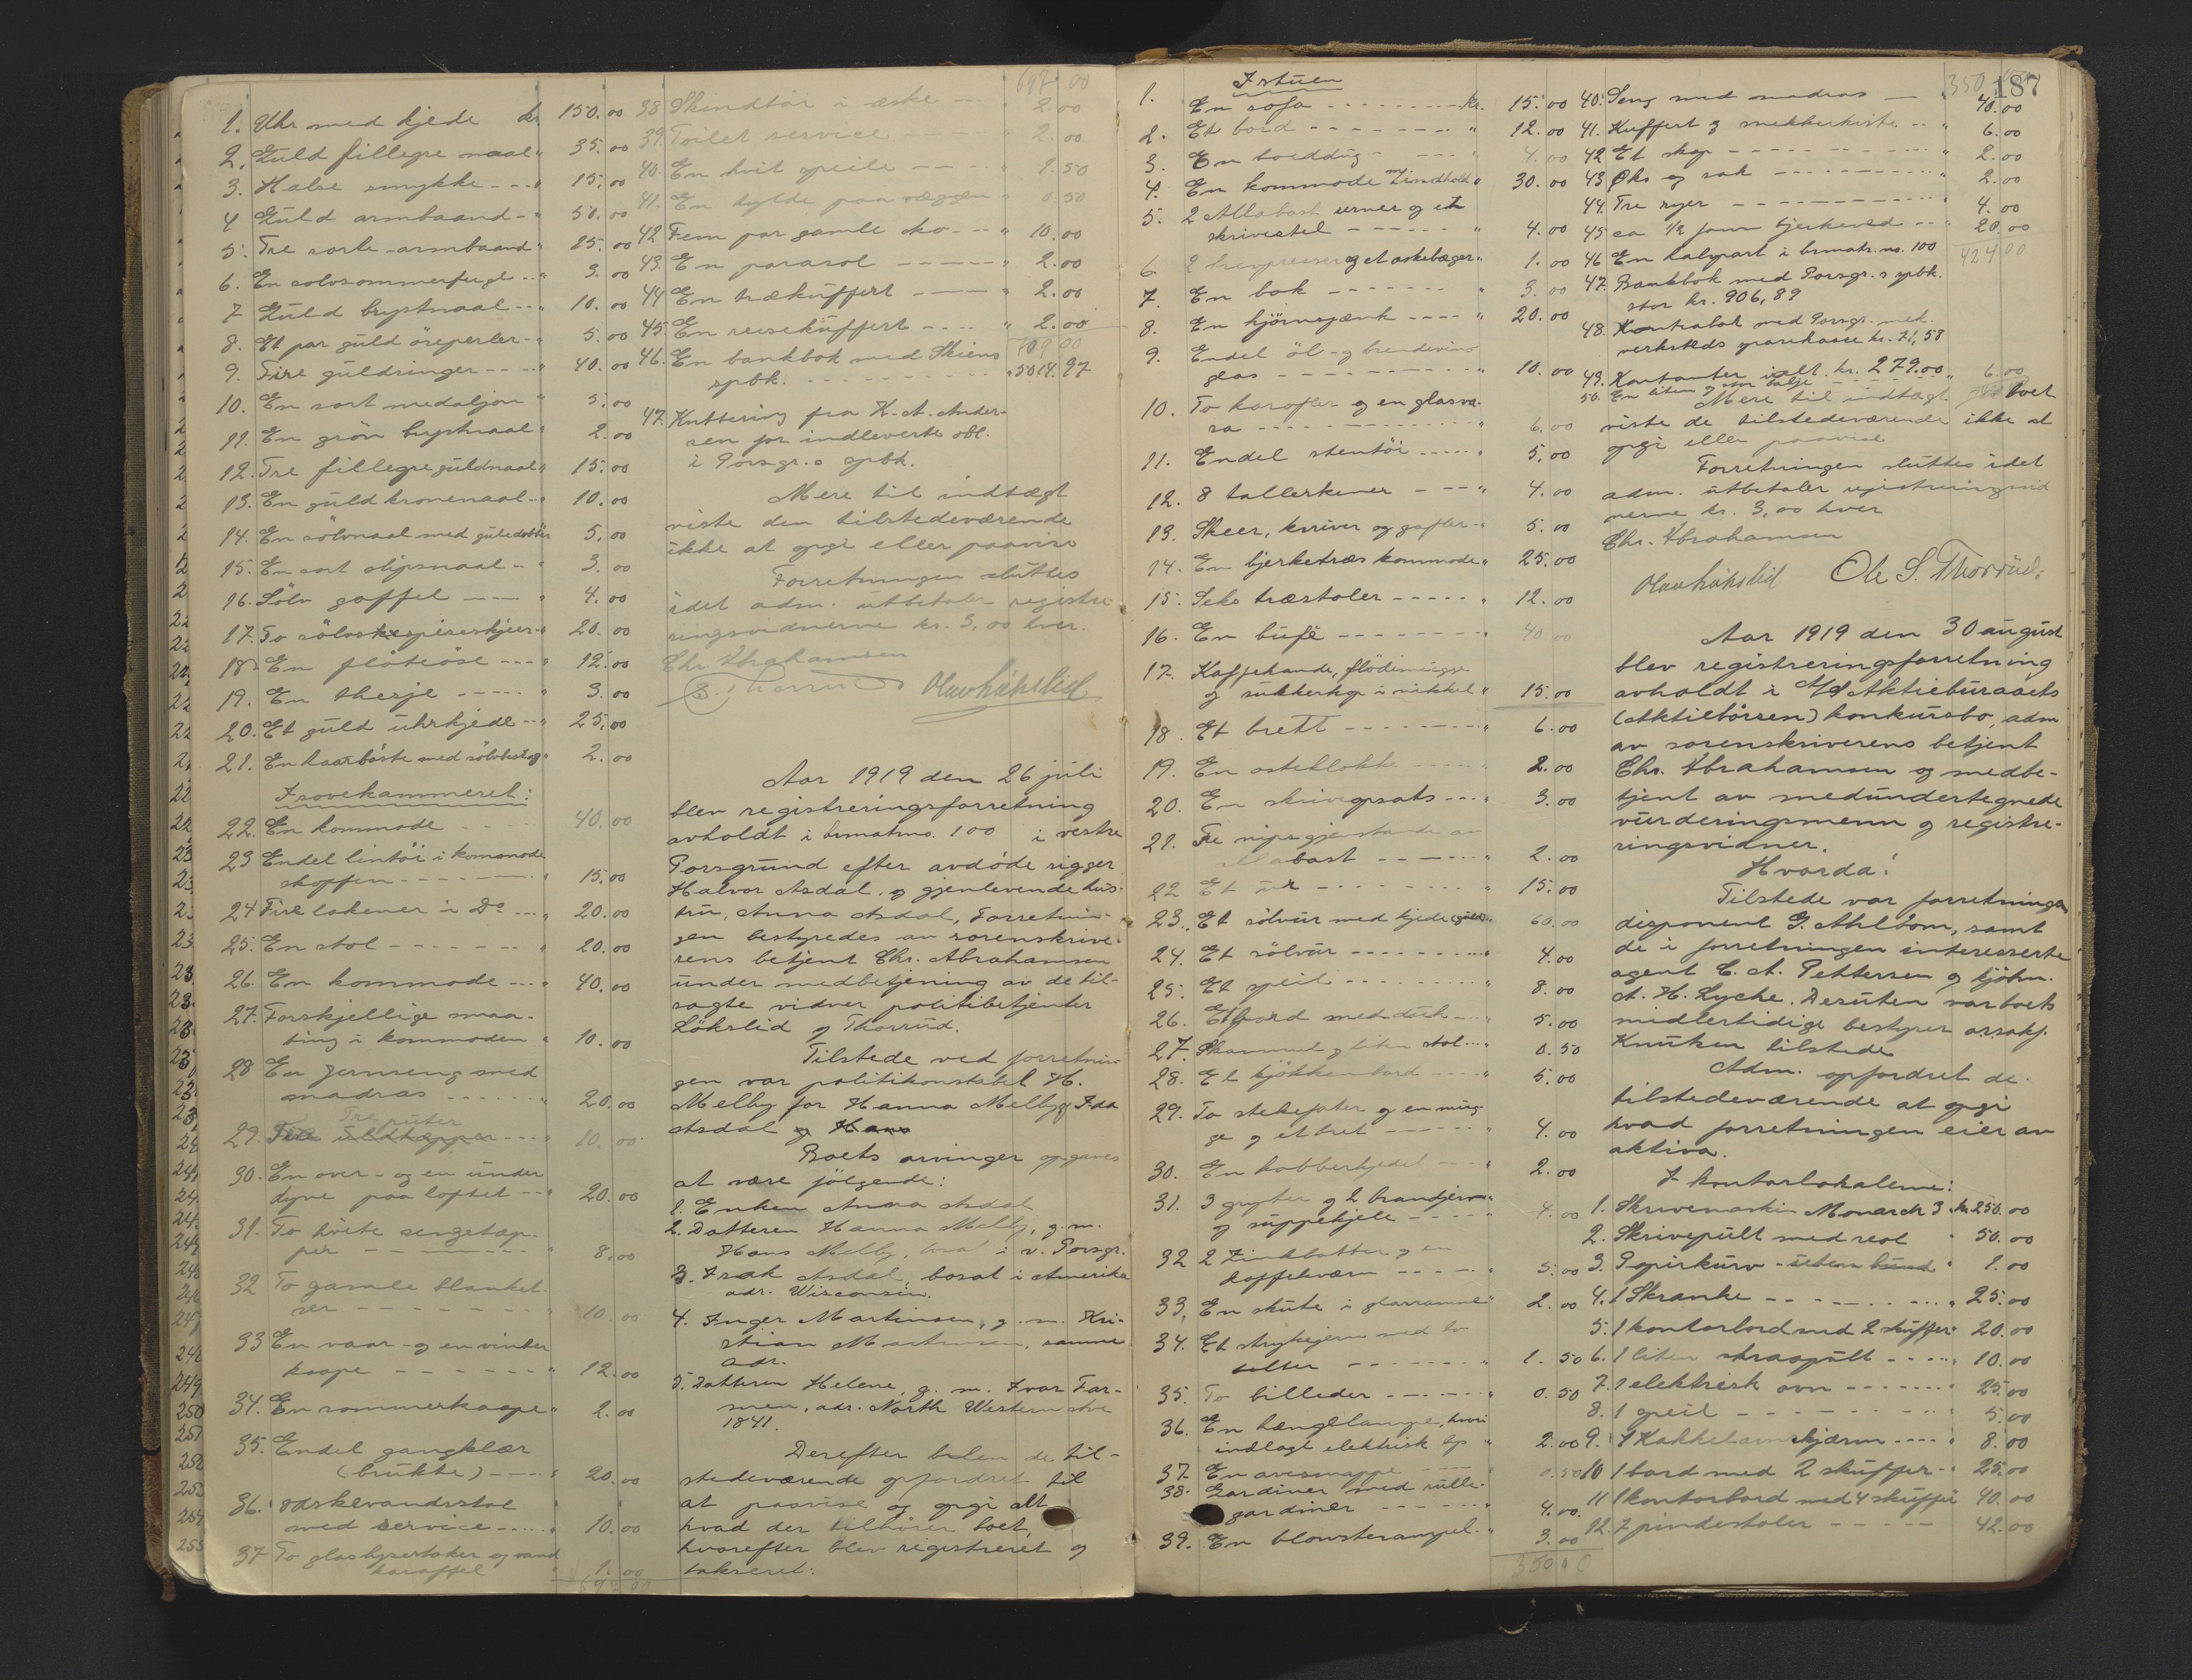 1. Uhr med kjede kr. 150.00
2. Guld fillegre naal " 35.00
3. Halse smykke - - - " 15.00
4 Guld armbaand - " 50.00
5. Tre sorte armbaand " 25.00
6. En solvsommerfugl - - " 3.00
7 Guld brystnaal - - " 10.00
8. Et par guld öreperler - " 5.00
9. Fire guldringer - - - " 40.00
10. En sort medaljon " 5.00
11. En grön brystnaal " 2.00
12. Tre fillegre guldnaal " 15.00
13. En guld kronenaal - " 10.00
14. En sölvnaal med 5.00
15. En sort slipsnaal - - " 3.00
16. Sölv gaffel - - - " 4.00
17. To sölv spiseskjeer - " 20.00
18. En flöteöse - - - " 12.00
19. En theskje - - - - " 3.00
20. Et guld uhrkjede - - " 25.00
21. En haarbörste med sölvbeslag " 2.00
I sovekammeret:
22. En kommode - - - 40.00
23 Endel lintöi i kommode
skuffen - - - - - - " 15.00
24 Fire lakener i Do - - - " 20.00
25. En stol - - - - - - " 20.00
26. En kommode - - - " 40.00
27. Forskjellige smaa-
ting i kommoden " 10.00
28 En jernseng med
madras - - - - - - " 20.00
Tre puter
29. Fire uldtæpper - - - " 10.00
30. En over- og en under
dyne paa loftet - - - " 20.00
31. To hvite sengetæp-
per - - - - - - - " 8.00
32 To gamle blanket-
ser - - - - - - - " 10.00
33 En vaar- og en vinter
kaape - - - - - - " 12.00
34. En sommerkaape " 2.00
35. Endel gangklær
(brukte) - - - - " 20.00
36. Vaskevandsstol
med service - - - - " 10.00
37 To glas lysestaker og vand
karaffel " 1.00
697 00
38 Skindtöi i æske - - " 2.00
39. Toilet service - - " 2.00
40. En hvit speile - - - - " 1.50
41. En hylde paa væggen " 0.50
42 Fem par gamle sko - - " 10.00
43. En parasol - - - - - " 2.00
44 En trækuffert - - - - " 2.00
45. En reisekuffert - - - - " 2.00
709 00
46. En bankbok med Skiens
spbk. - - - - - - - - " 5014.97
47. Kvittering fra K. A. Ander-
sen for indleverte obl.
i Porsgr.s spbk.
Mere til indtægt
viste den tilstedeværende
ikke at opgi eller paavise
Forretningen sluttes
idet adm. utbetaler registre-
ringsvidnerne kr. 3,00 hver.
Chr. Abrahamsen
S. Thorrud Olav Lökslid
Aar 1919 den 26 juli
blev registreringsforretning
avholdt i brmatrno. 100 i vestre
Porsgrund efter avdöde rigger
Halvor Asdal og gjenlevende hus-
tru, Anna Asdal, Forretnin-
gen bestyredes av sorenskrive-
rens betjent Chr. Abrahamsen
under medbetjening av de til-
sagte vidner politibetjenter
Lökslid og Thorrud.
Tilstede ved forretnin-
gen var politikonstabel H.
Melby for Hanna Melby og Ida
Asdal og Hans
Boets arvinger opgaves
at være følgende:
1. Enken Anna Asdal
2. Datteren Hanna Melby, g. m.
Hans Melby, bosat i v. Porsgr.
3. Isak Asdal, bosat i Amerika
adr. Wisconsin.
4. Inger Martinsen, g. m. Kri-
stian Martinsen, samme
adr.
5. Datteren Helene, g. m. Ivar Far-
men, adr. North Western Ave
1841.
Derefter blev de til-
stedeværende opfordret til
at paavise og opgi alt
hvad der tilhörer boet,
hvorefter blev registreret og
takseret:
I stuen
1. En sofa - - - - - - - - kr. 15.00
2. Et bord - - - - - - - " 12.00
3. En borddug - - - - " 4.00
4. En kommode m/ indhold " 30.00
5. 2 Allabast urner og et
skrivestel - - - - - - " 4.00
6. 2 brevpresser og et askebæger " 1.00
7. En bok - - - - - - - " 3.00
8. En hjörnsjænk - - - - " 20.00
9. Endel öl- og brendevins
glas - - - - - - - - - " 10.00
10. To karafler og en glasva-
sa - - - - - - - - - - " 6.00
11. Endel stentöi - - - - - " 5.00
12. 8 tallerkener - - - - " 4.00
13. Skeer, kniver og gafler - " 5.00
14. En bjerketræs kommode " 25.00
15. Seks træstoler - - - - - " 12.00
16. En bufé - - - - - - - " 40.00
17. Kaffekande, flödemugge
og sukkerkop i nikkel " 15.00
18. Et brett - - - - - - - - " 6.00
19. En osteklokke - - - - - " 2.00
20. En skriveopsats - - - " 3.00
21. Tre nipsgjenstande av
allabast - - - - - - " 2.00
22 Et ur - - - - - - - " 15.00
23. Et sölvur med kjede (guld) " 60.00
24. Et sölvur - - - - - - - " 4.00
25. Et speil - - - - - - - " 8.00
26. Et bord med duk - - " 5.00
27. Skammel og liten stol - - " 0.50
28. Et kjökkenbord - - - - " 5.00
29. To stekefater og en mug-
ge og et bret - - - - - " 4.00
30. En kobberkjedel - - - " 2.00
31. 3 gryter og 2 brandjern
og suppekjele - - - - " 4.00
32 2 Zinkbøtter og en
kaffekværn - - - - " 5.00
33. En skute i glasramme " 2.00
34. Et strykejern med to
bolter - - - - - - " 1.50
35. To billeder - - - - - " 0.50
36. En hængelampe, hvori
indlagt elektrisk lys " 2.00
37 En avismappe - - - - " 0.50
38. Gardiner med rulle-
gardiner - - - - - - " 4.00
39. En blomsterampel. " 3.00
350 00
187
350
40. Seng med madras - - " 40.00
41. Kuffert og snekkerkiste - - " 6.00
42 Et skap - - - - - - - - " 2.00
43 Øks og sak - - - - - - - " 2.00
44. Tre ryer - - - - - - - - " 4.00
45 ca 1/2 favn bjerkeved - - " 20.00
424 00
46 En halvpart i brmatr. no. 100
47. Bankbok med Porsgr.s spbk.
stor kr. 906,89
48. Kontrabok med Porsgr. mek.
verksteds sparekasse kr. 71,58
49. Kontanter ialt kr. 279.00
50. En liten og stor balje - - - " 6.00
Mere til indtægt for boet
viste de tilstedeværende ikke at
opgi eller paavise
Forretningen sluttes idet
adm. utbetaler registreringsvid
nerne kr. 3,00 hver
Chr. Abrahamsen
Olav Lökslid Ole S. Thorrud.
Aar 1919 den 30 august
blev registreringsforretning
avholdt i A/S Aktiebureaets
(Aktiebörsen) konkursbo, adm
av sorenskriverens betjent
Chr. Abrahamsen og medbe-
tjent av medundertegnede
vurderingsmenn og registre-
ringsvidner.
Hvorda!
Tilstede var forretningens
disponent G. Ahlbom, samt
de i forretningen interesserte
agent C. A. Pettersen og kjöbm.
A. H. Lycke. Desuten var boets
midlertidige bestyrer o.r.sakf.
Knutsen tilstede
Adm. opfordret de
tilstedeværende at opgi
hvad forretningen eier av
aktiva.
I kontorlokalerne:
1. Skrivemaskin Monarch 3 kr. 250.00
2. Skrivepult med reol " 50.00
3. Papirkurv - uten bund " 1.00
4. 1 Skranke - - - - - - - " 25.00
5. 1 kontorbord med 2 skuffer " 20.00
6. 1 liten straapult - - - - " 10.00
7. 1 elektrisk ovn - - - - - " 25.00
8. 1 speil - - - - - - - - " 5.00
9. 1 Kakkelovnskjærm - - - - " 8.00
10 1 bord med 2 skuffer - " 25.00
11 1 kontorbord med 4 skuffer 40.00
12. 7 pindestoler - - - - - 42.00